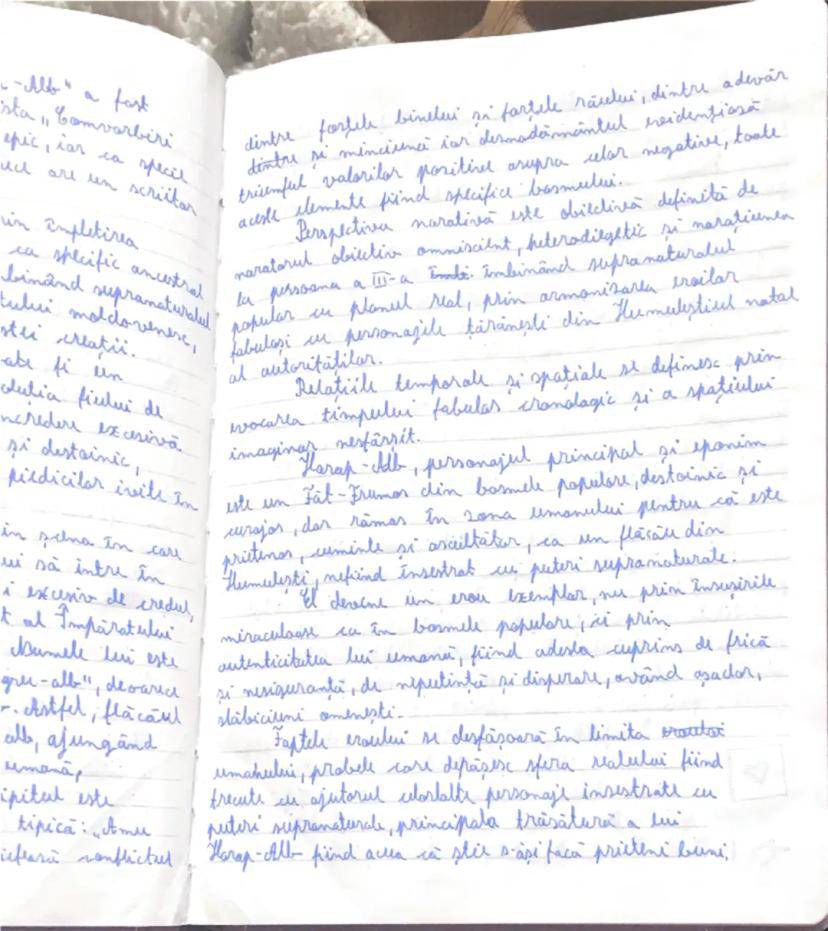 -Alb" a fost
sta „Convorbiri
epic, iar ca specie
uct are un scriitor
rin împletirea
ca specific ancestral
binând supranaturalul
tului moldovenesc,
stei creații.
ate fi un
oluția fiului de
ncredere excesivă
și destoinic,
piedicilor ivite în
in scena în care
ui să intre în
i excesiv de credul,
t al Împăratului
Numele lui este
gru-alb", deoarece
r. Astfel, flăcăul
alb, ajungând
umană,
ipitul este
tipică: „Amu
iefează conflictul
dintre forțele binelui și forțele răului, dintre adevăr
dintre și minciună iar deznodământul evidențiază
triumful valorilor pozitive asupra celor negative, toate
aceste elemente fiind specifice basmului.
Perspectiva narativă este obiectivă definită de
naratorul obiectiv omniscient, heterodiegetic și narațiunea
la persoana a III-a îmbinând supranaturalul
popular cu planul real, prin armonizarea eroilor
fabuloși cu personajele țărănești din Humuleștiul natal
al autorităților.
Relațiile temporale și spațiale se definesc prin
evocarea timpului fabulos cronologic și a spațiului
imaginar nesfârșit.
Harap-Alb, personajul principal și eponim
este un Făt-Frumos din basmele populare, destoinic și
curajos, dar rămas în zona umanului pentru că este
prietenos, cuminte și ascultător, ca un flăcău din
Humulești, nefiind înzestrat cu puteri supranaturale.
El devine un erou exemplar, nu prin însușirile
miraculoase ca în basmele populare, ci prin
autenticitatea lui umană, fiind adesea cuprins de frică
și nesiguranță, de neputință și disperare, având așadar,
slăbiciuni omenești.
Faptele eroului se desfășoară în limita
umanului, probele care depășesc sfera realului fiind
trecute cu ajutorul celorlalte personaje înzestrate cu
puteri supranaturale, principala trăsătură a lui
Harap-Alb fiind aceea că știe s-ăși facă prieteni buni.